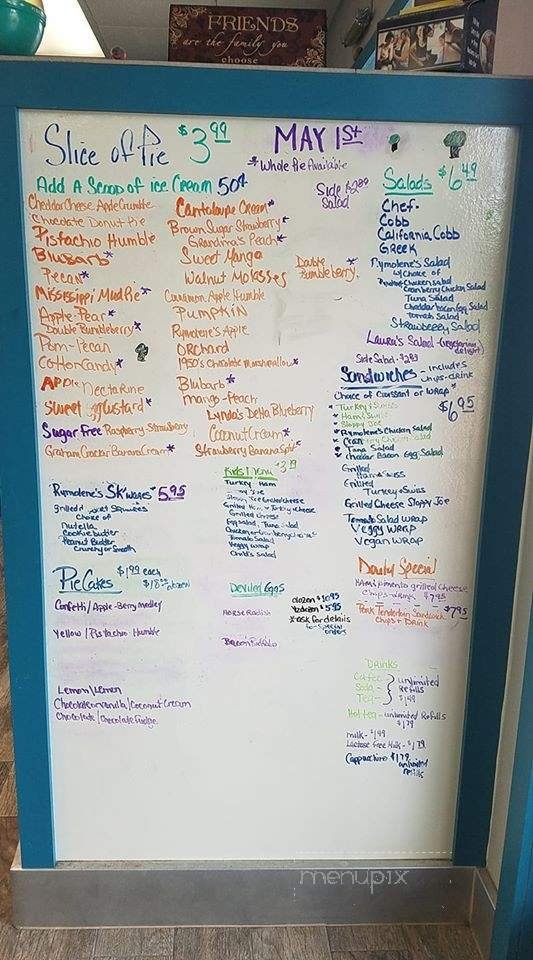 FRIENDS
are the family you
choose
Slice of Pie $3.99
MAY 1st
*Whole Pie Available
Add A Scoop of ice Cream 50¢
Side Salad $2.89
Cheddar Cheese Apple Crumble
Chocolate Donut Pie
Pistachio Humble
Blusarb*
Pecan*
Mississippi Mud Pie*
Apple-Pear*
Double Bumbleberry*
Pom-Pecan
Cotton Candy*
Apple Nectarine
Sweet Egg Custard*
Sugar Free Raspberry-Strawberry
Graham Cracker Banana Cream*
Cantaloupe Cream*
Brown Sugar Strawberry*
Grandma's Peach*
Sweet Mango
Walnut Molasses
Cinnamon Apple Humble
Pumpkin
Rymolene's Apple
Orchard
1950's Chocolate Marshmallow*
Blubarb*
Mango-Peach
Lynda's Delta Blueberry
Coconut Cream*
Strawberry Banana Split*
Double Bumbleberry
Salads $6.49
Chef-
Cobb
California Cobb
Greek
Rymolene's Salad
w/choice of
Chicken Salad
Cranberry Chicken Salad
Tuna Salad
Cheddar bacon Egg Salad
Tomato Salad
Strawberry Salad
Laura's Salad - Vegetarian delight
Side Salad - $2.89
Sandwiches - includes chips-drink
Choice of Croissant or Wrap* $6.95
* Turkey & Swiss
* Ham & Swiss
* Sloppy Joe
* Rymolene's Chicken Salad
* Cranberry Chicken Salad
* Tuna Salad
* Cheddar Bacon Egg Salad
Grilled Ham & Swiss
Grilled Turkey & Swiss
Grilled Cheese Sloppy Joe
Tomato Salad Wrap
Veggy Wrap
Vegan Wrap
Rymolene's Sk'wages* $5.95
grilled
Choice of
Nutella
Cookie butter
Peanut Butter
Crunchy or Smooth
Kids Menu
Turkey Ham
Grilled Ham & Turkey & Cheese
Grilled Cheese
Egg Salad, Tuna Salad
Tomato Salad
Veggy Wrap
Child's Salad
Pie Cakes $1.99 each
dozen
Confetti/Apple-Berry Medley
Yellow/Pistachio Humble
Lemon/Lemon
Chocolate or vanilla/Coconut Cream
Chocolate/Chocolate Fudge
Deviled Eggs
dozen $10.95
½ dozen $5.95
*ask for details
for special orders
Horse Radish
Bacon
Daily Special
Ham & Pimento grilled Cheese
Chips-drink $7.95
Pork Tenderloin Sandwich $7.95
Chips & Drink
Drinks
Coffee-
Soda-
Tea-
unlimited Refills $1.49
Hot tea - unlimited Refills $1.79
Milk - $1.49
Lactose Free Milk - $1.79
Cappuccino $1.79 unlimited refills
menupix